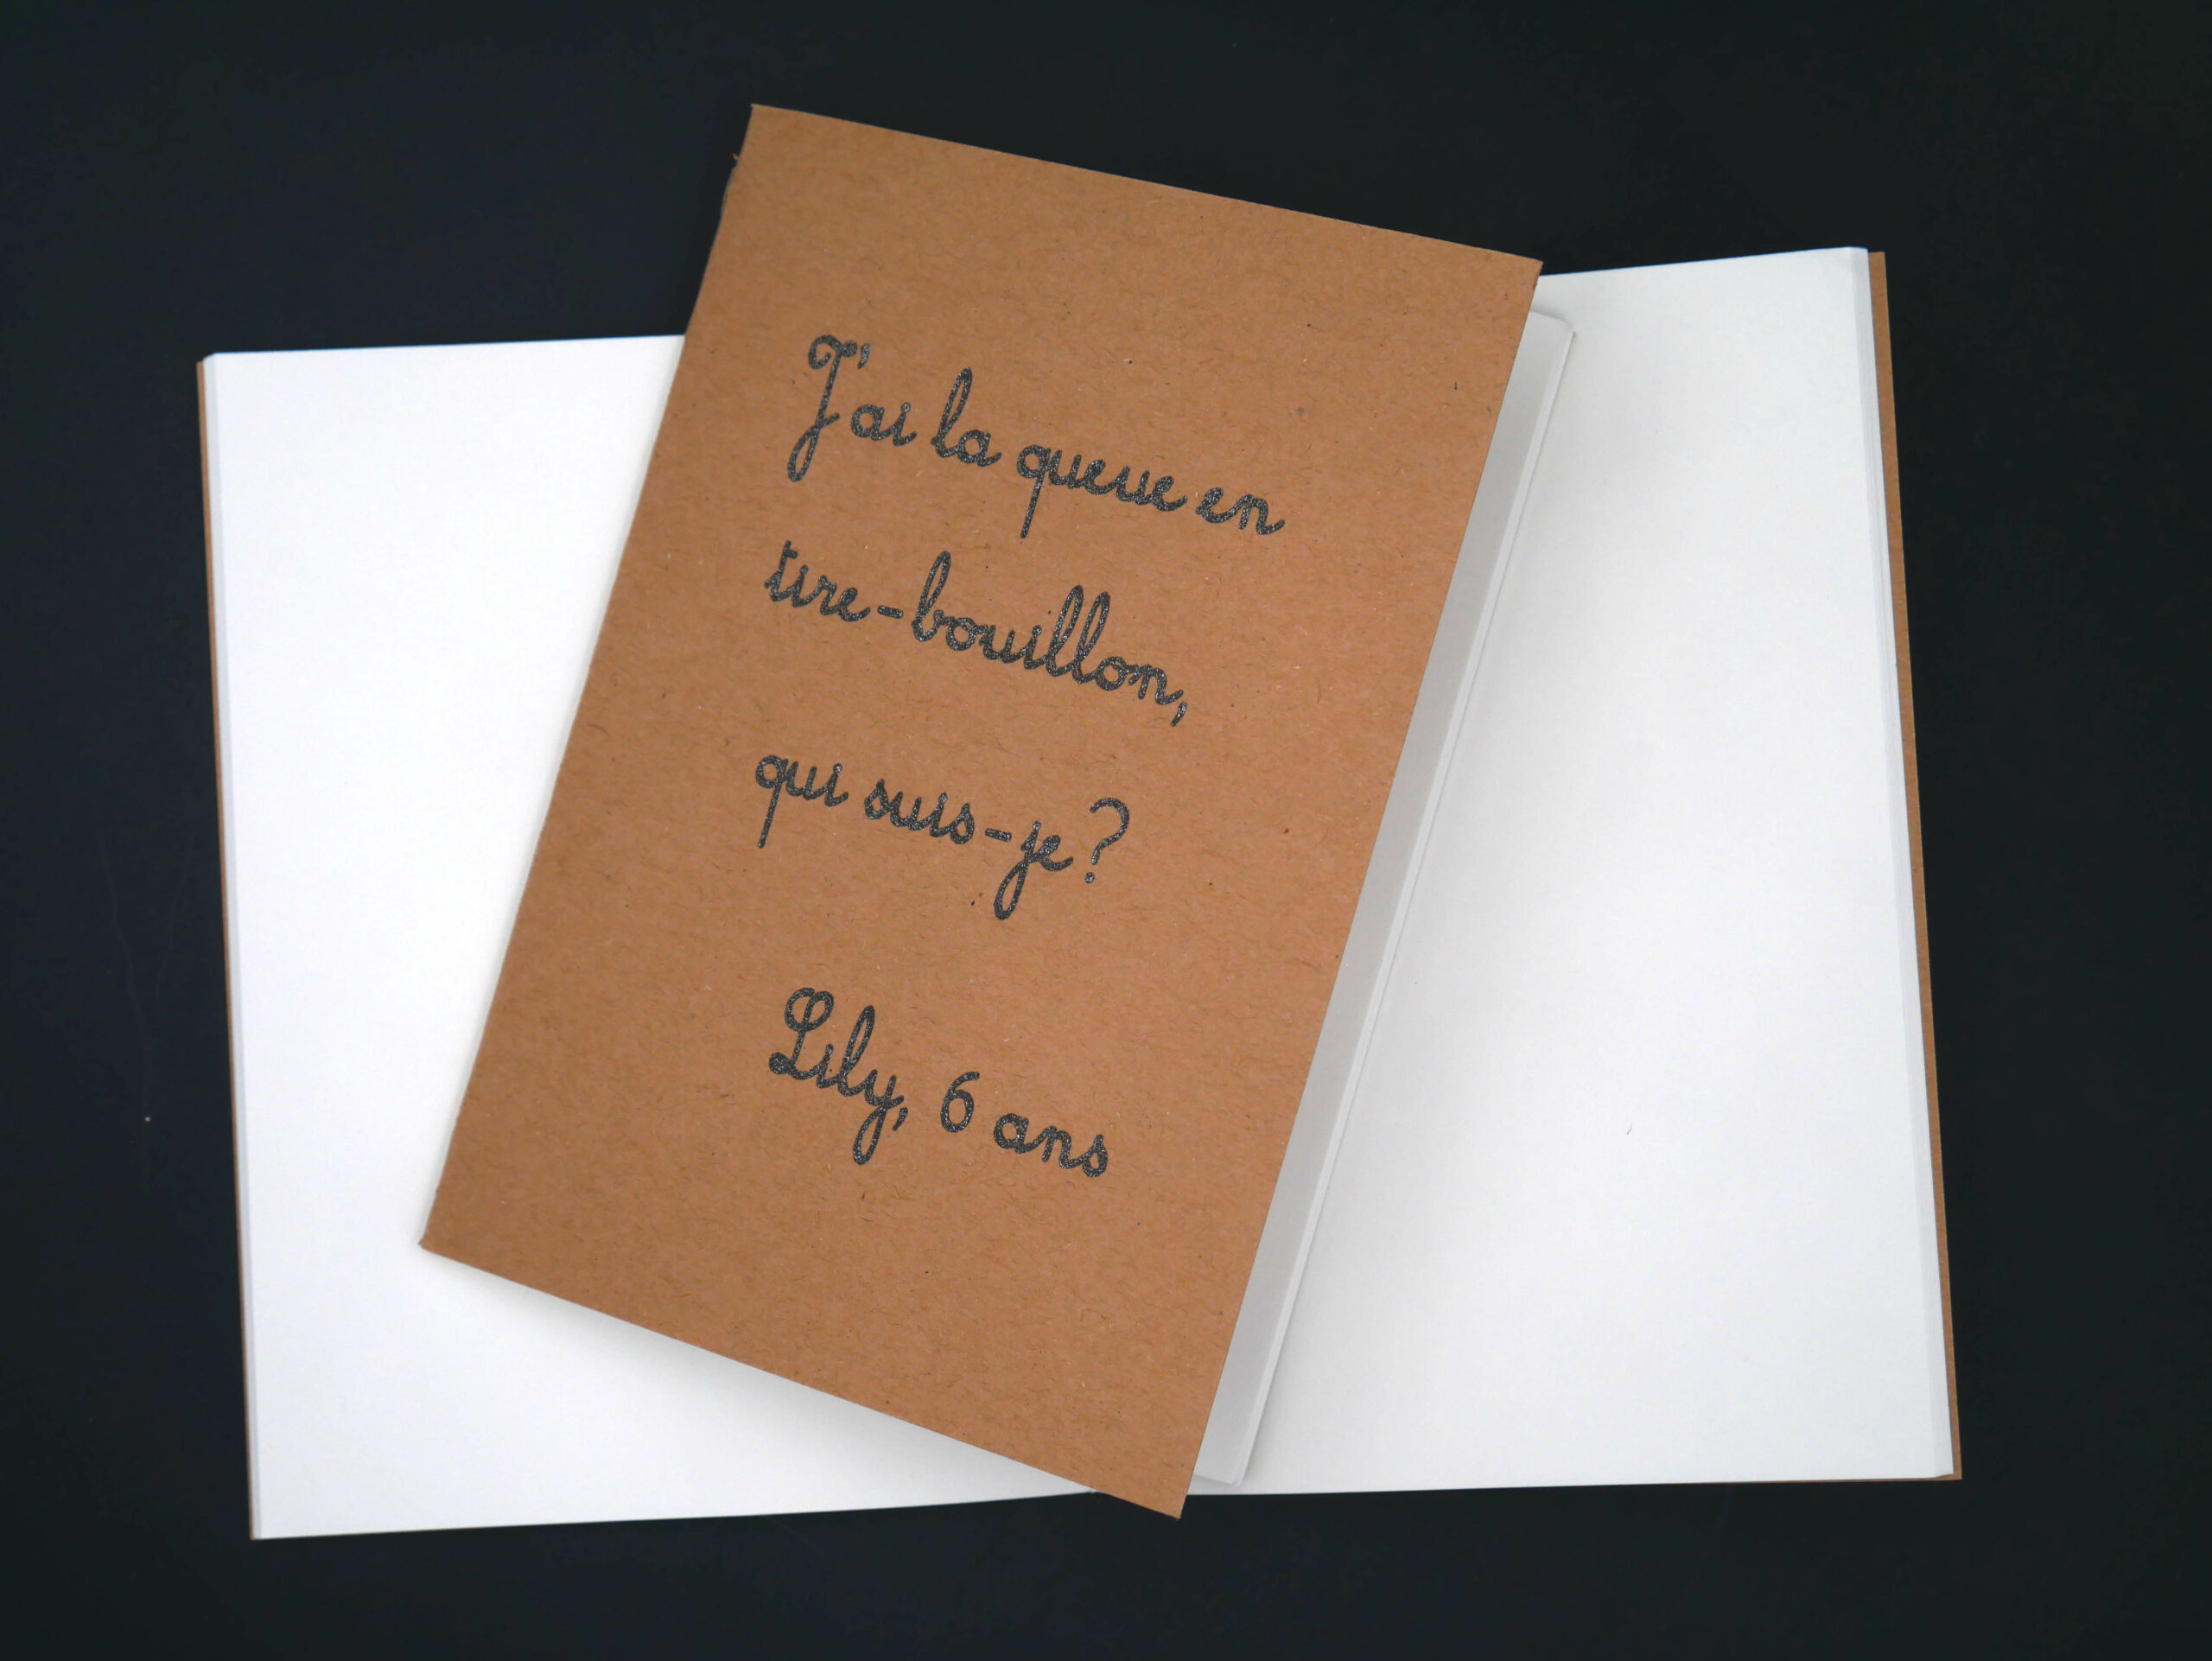 J'ai la queue en
tire-bouillon,
qui suis-je ?
Lily, 6 ans